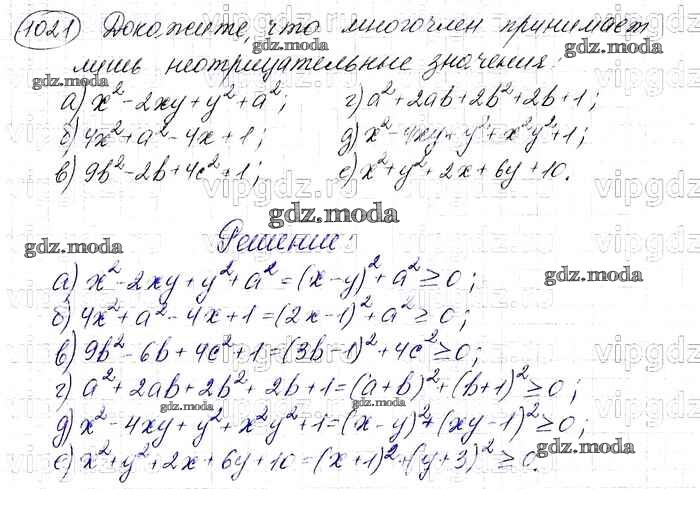 1021 Докажите, что многочлен принимает
лишь неотрицательные значения:
gdz.moda
а) x² - 2xy + y² + a²; г) a² + 2ab + 2b² + 2b + 1;
gdz.moda gdz.moda
б) 4x² + a² - 4x + 1; д) x² - 4xy + y² + x²y² + 1;
в) 9b² - 2b + 4c² + 1; е) x² + y² + 2x + 6y + 10.
vipgdz.ru vipgdz
gdz.moda
Решение:
gdz.moda
а) x² - 2xy + y² + a² = (x - y)² + a² ≥ 0;
gdz.moda
б) 4x² + a² - 4x + 1 = (2x - 1)² + a² ≥ 0;
в) 9b² - 6b + 4c² + 1 = (3b - 1)² + 4c² ≥ 0;
г) a² + 2ab + 2b² + 2b + 1 = (a + b)² + (b + 1)² ≥ 0;
gdz.moda gdz.moda
д) x² - 4xy + y² + x²y² + 1 = (x - y)² + (xy - 1)² ≥ 0;
gdz.moda
е) x² + y² + 2x + 6y + 10 = (x + 1)² + (y + 3)² ≥ 0.